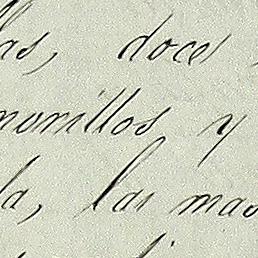 las, doce
morillos y
la, las mas